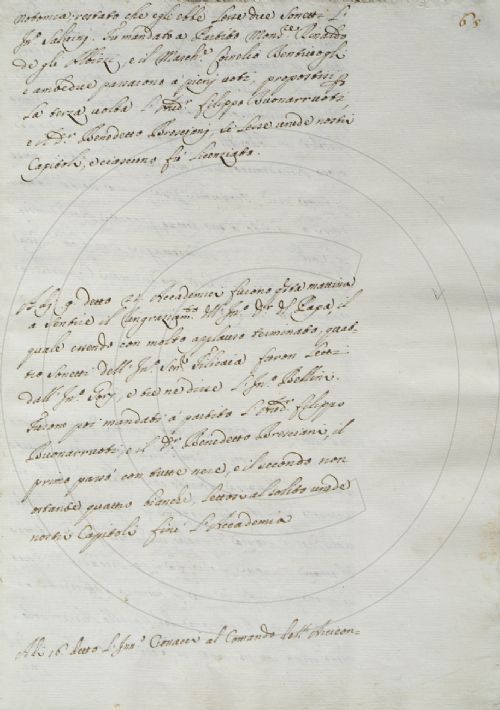 65
Notomia; restato che egli ebbe lesse due Sonetti l'
Inn.º Salvini. Fu mandato a Partito Mons.r Rinaldo
de gli Albizi, e il March. Cornelio Bentivogli
e ambedue passarono a pieni voti, propostisi p
la terza volta l' Filippo Buonarruoti,
e il D.r Benedetto Bresciani, si lesse uno de nostri
Capitoli, e ciascuno fu licenziato.
Adj 9 detto Gli Accademici furono questa mattina
a sentire il dell' Inn.º D.r del Papa, il
quale essendo con molto applauso terminato, quat-
tro Sonetti dell' Inn.º Sen.r Filicaia furon letti
dall' Inn.º Gori, e tre ne disse l' Inn.º Bellini.
Furono poi mandati a partito l' Filippo
Buonarruoti, e il D.r Benedetto Bresciani, il
primo passò con tutte nere, e il secondo non
ostante quattro bianche, lettosi al solito uno de
nostri Capitoli finì l'Accademia
Adi 16 detto l'Inn.º al Comando dell' Arcicon-